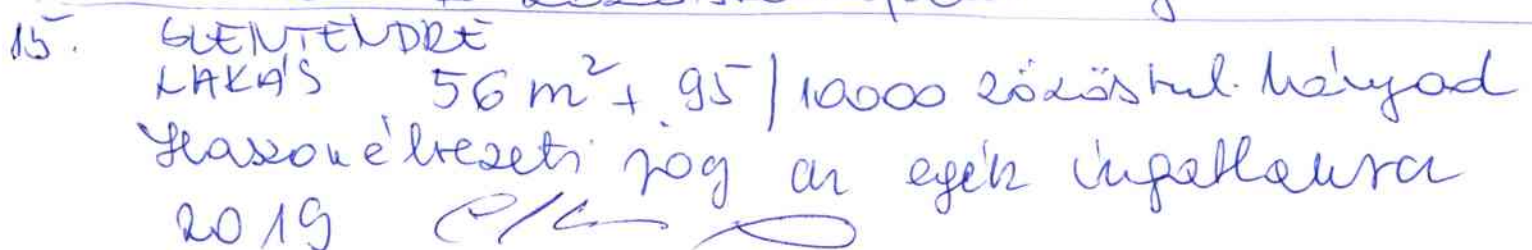 15. SZENTENDRE
LAKÁS 56 m² + 95/10000 közös tul. hányad
Haszonélvezeti jog az egész ingatlanra
2019